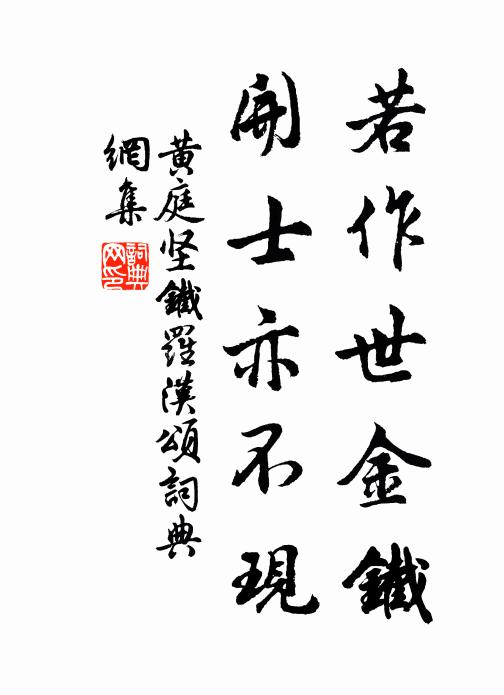 若作世金鐵
開士亦不現
黄庭坚鐵羅漢頌詞典
網集
詞典网印